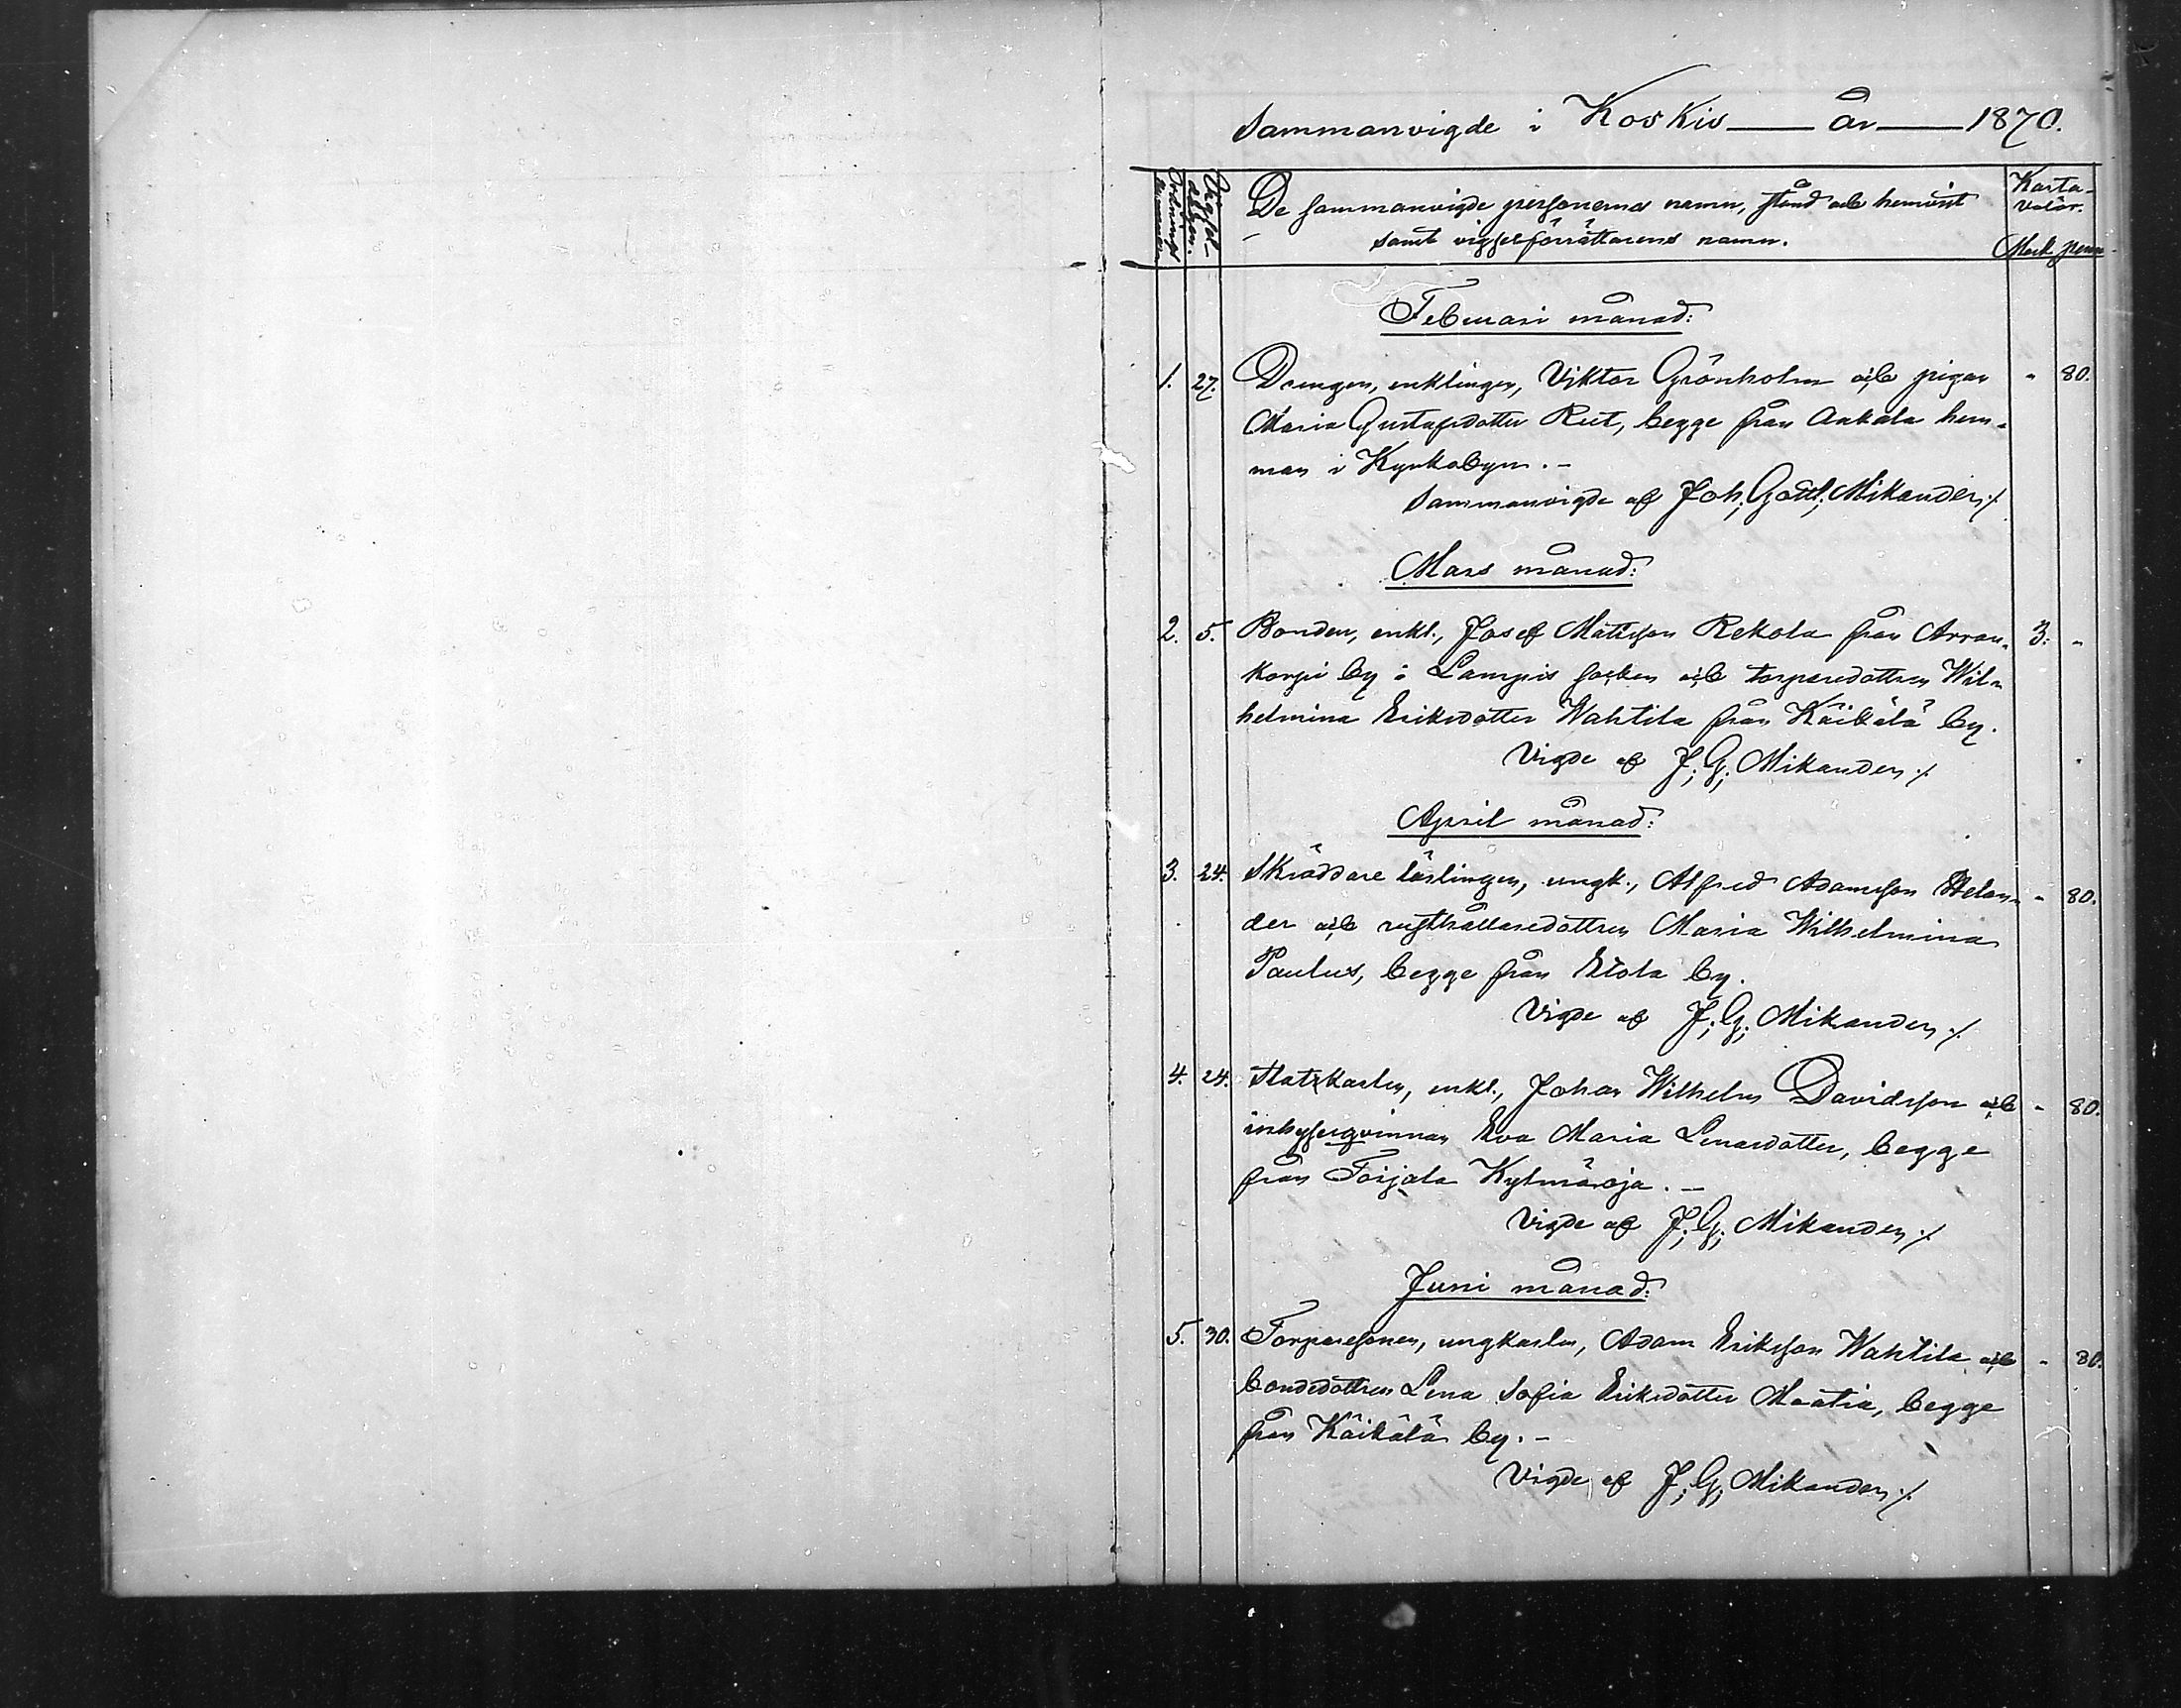 Sammanvigde i Koskis år 1870.
Ordnings nummer.
Vigsel dagen.
De sammanvigde personernas namn, stånd och hemvist
samt vigselförrättarens namn.
Karta-
Valör.
Mark penni
Februari månad:
1. 27. Drengen, enklingen, Viktor Grönholm och pigan " 80.
Maria Gustafsdotter Reet, begge från Ankola hem-
man i Kyrkobyn. -
Sammanvigde af Joh; Gottl; Mikander ./.
Mars månad:
2. 5. Bonden, enkl., Josef Matsson Rekola från Arran- 3: "
korpi by i Lampis socken och torparedottren Wil-
helmina Eriksdotter Wahtila från Käikälä by.
Vigde af J; G; Mikander ./.
April månad:
3. 24. Skräddare lärlingen, ungk., Alfred Adamsson Helan- " 80.
der och rusthållaredottren Maria Wilhelmina
Paulus, begge från Etola by.
Vigde af J; G; Mikander ./.
4. 24. Statkarlen, enkl., Johan Wilhelm Davidsson och " 80.
inhyseqvinnan Eva Maria Lenasdotter, begge
från Toijala Kylmäoja. -
Vigde af J; G; Mikander ./.
Juni månad:
5. 30. Torparesonen, ungkarlen, Adam Eriksson Wahtila och " 80.
bondedottren Lena Sofia Eriksdotter Maatia, begge
från Käikälä by. -
Vigde af J; G; Mikander ./.